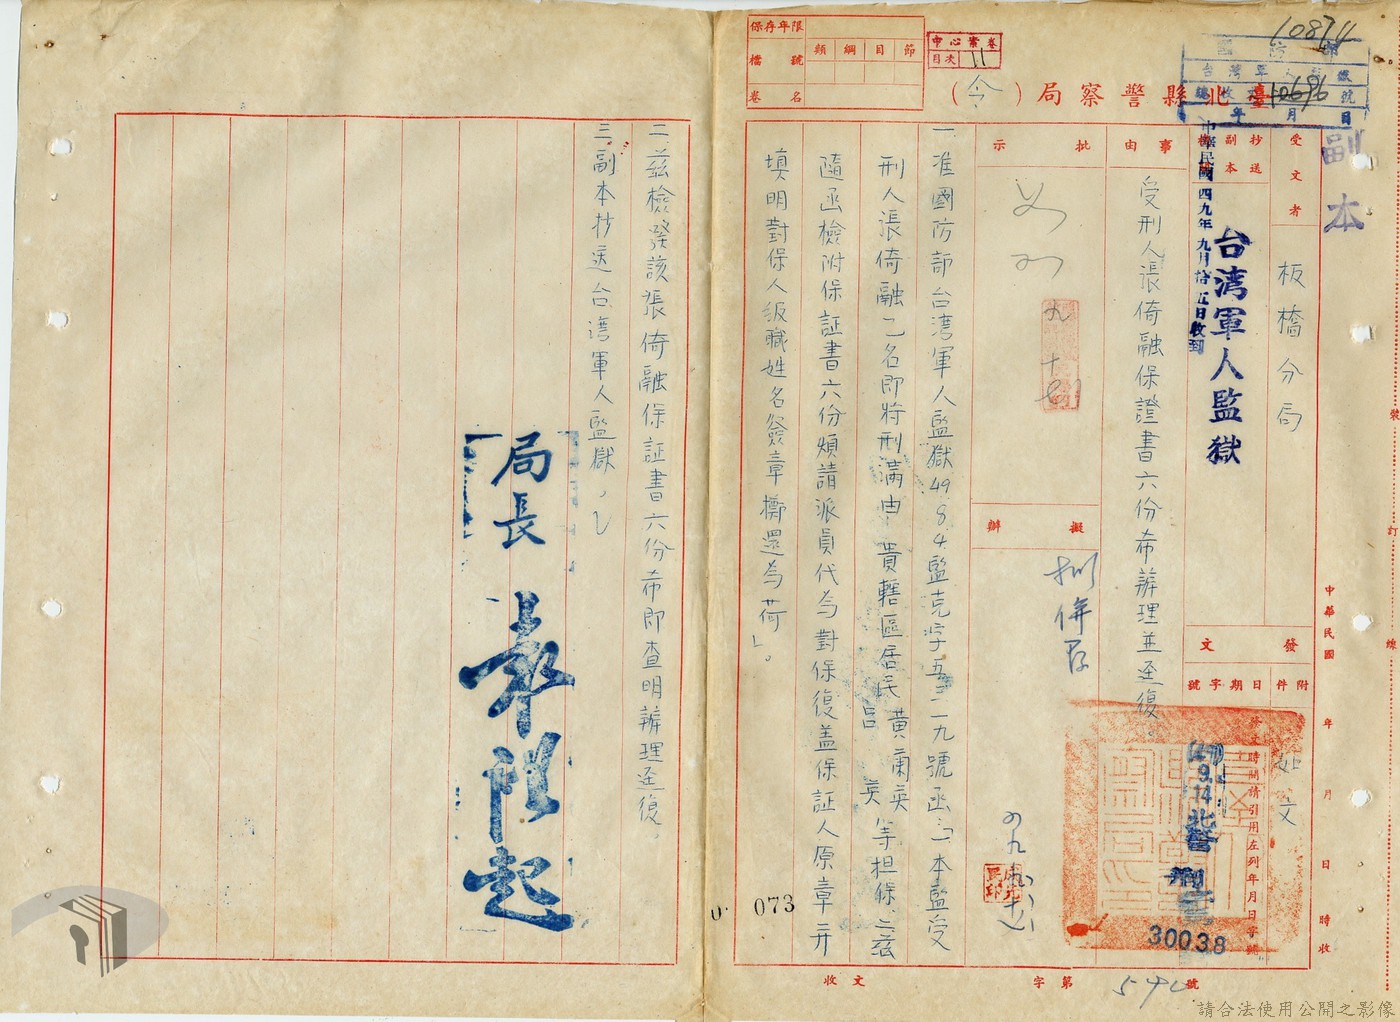 副本
10874
10696
臺北縣警察局（令）
保存年限
檔號
類 綱 目 節
卷名
中心案卷
目次 11
受文者
板橋分局
抄送副本
台湾軍人監獄
中華民國四九年九月拾五日收到
發文
附件
如文
日期字號
發文時間請引用左列年月日字號
49.9.14北警刑
30038
事由
受刑人張倚融保證書六份希辦理並逕復。
批示
擬辦
擬併存
一、准國防部台湾軍人監獄49.8.4.監克字五二一九號函:「一本監受
刑人張倚融乙名即將刑滿由 貴轄區居民黃蘭英 呂英等担保二茲
隨函檢附保証書六份煩請派員代为對保復盖保証人原章并
填明對保人級職姓名簽章擲還为荷」。
二、茲檢發該張倚融保証書六份希即查明辦理逕復。
三、副本抄送台湾軍人監獄。
局長
073
中華民國 年 月 日 時收
收文 字第 號
裝
訂
線
請合法使用公開之影像